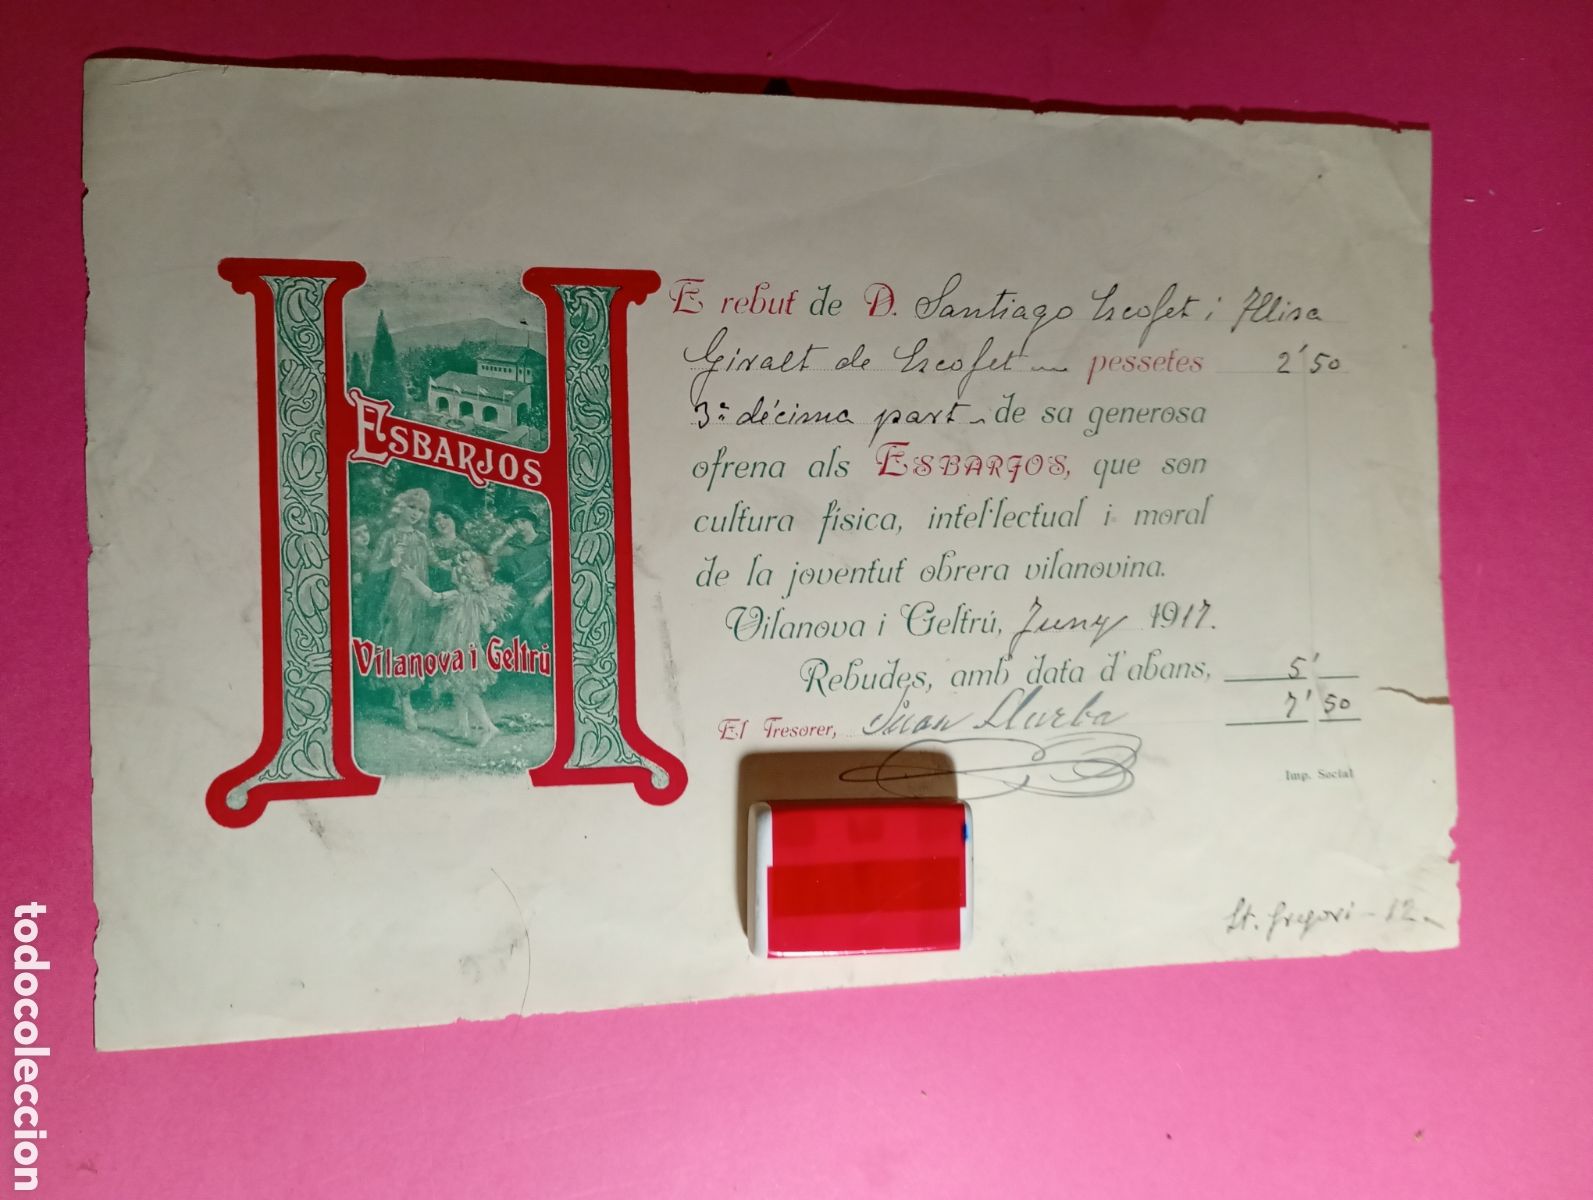 ESBARJOS
Vilanova i Geltrú
HE rebut de D. Santiago Escofet i Elisa
Giralt de Escofet pessetes 2'50
3ª décima part de sa generosa
ofrena als ESBARJOS, que son
cultura física, intel·lectual i moral
de la joventut obrera vilanovina.
Vilanova i Geltrú, Juny 1917.
Rebudes, amb data d'abans, 5'
7'50
El Tresorer, Juan Llurba
Imp. Social
St. Gregori - 12
todocoleccion